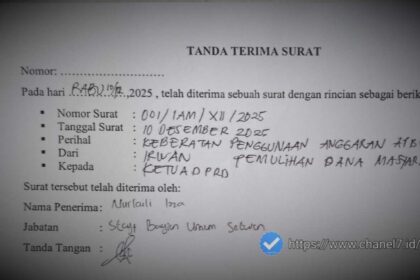 TANDA TERIMA SURAT
Nomor: ..............................
Pada hari RABU 10/12, 2025 , telah diterima sebuah surat dengan rincian sebagai berik
• Nomor Surat : 001/IAM/XII/2025
• Tanggal Surat : 10 DESEMBER 2025
• Perihal : KEBERATAN PENGGUNAAN ANGGARAN
• Dari : IRWAN PEMULIHAN DANA MASYAR
• Kepada : KETUA DPRD
Surat tersebut telah diterima oleh:
Nama Penerima: Nurlaili
Jabatan : Staf Bagian Umum
Tanda Tangan :
https://www.chanel7.id/